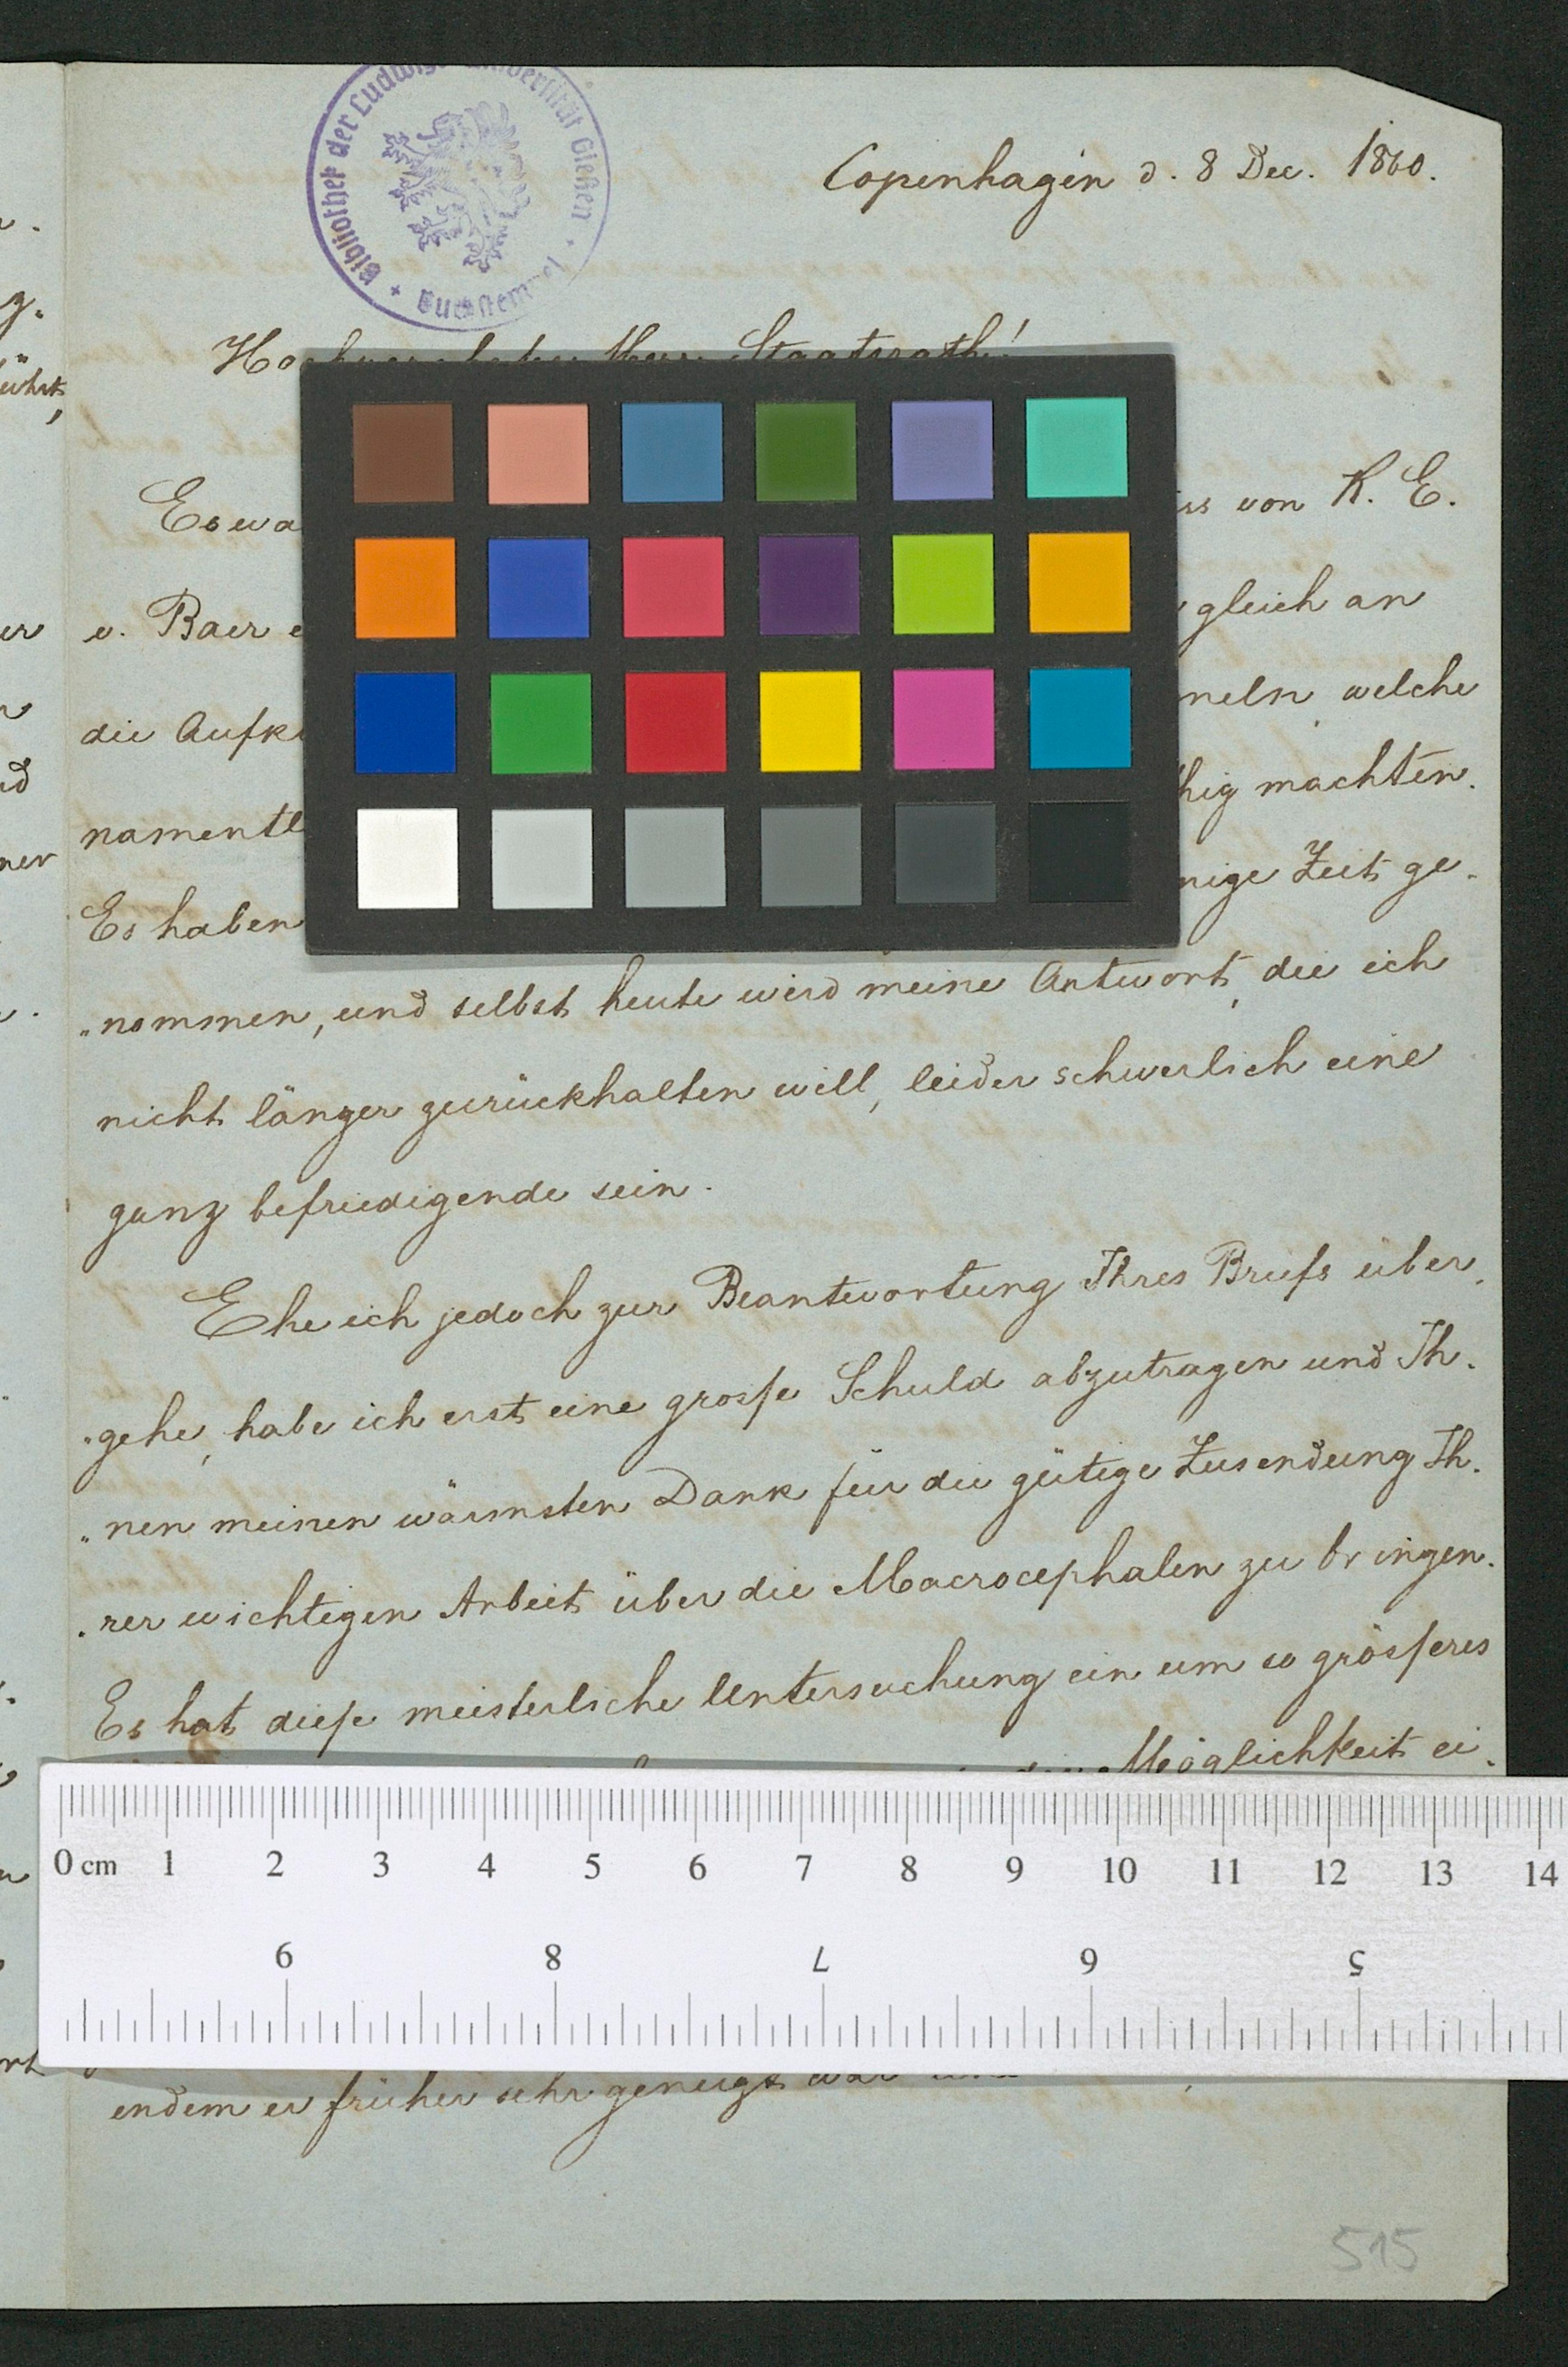 Bibliothek der Ludwigs-Universität Gießen
Copenhagen d. 8 Dec. 1860.
Staatsrath!
Es wa von K. E.
v. Baer gleich an
die Aufk meln welche
namentl hig machten.
Es haben nige Zeit ge-
"nommen, und selbst heute wird meine Antwort, die ich
nicht länger zurückhalten will, leider schwerlich eine
ganz befriedigende sein.
Ehe ich jedoch zur Beantwortung Ihres Briefs über-
"gehe, habe ich erst eine grosse Schuld abzutragen und Ih-
"nen meinen wärmsten Dank für die gütige Zusendung Ih-
"rer wichtigen Arbeit über die Macrocephalen zu bringen.
Es hat diese meisterliche Untersuchung ein um so grösseres
Möglichkeit ei-
0 cm 1 2 3 4 5 6 7 8 9 10 11 12 13 14
9 8 7 6 5
indem er früher sehr geneigt war
515